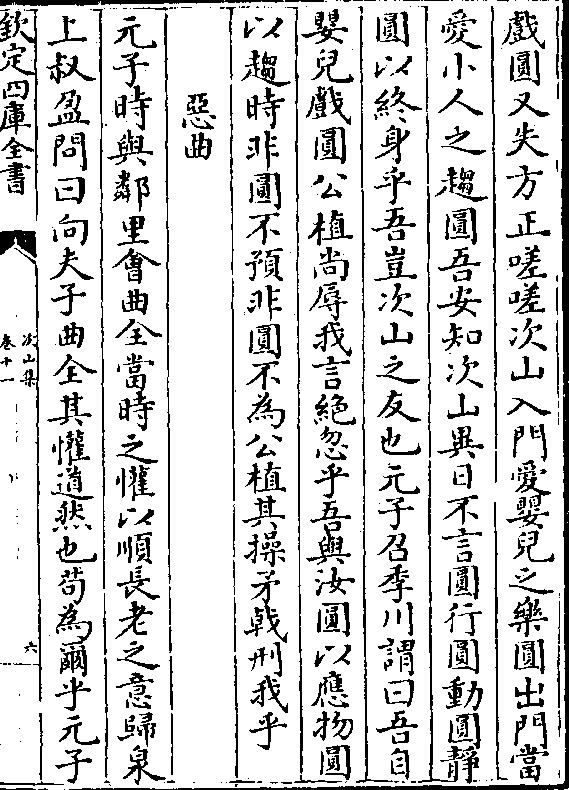 戲圓又失方正嗟嗟次山入門愛嬰兒之樂圓出門當
愛小人之趨圓吾安知次山異日不言圓行圓動圓靜
圓以終身乎吾豈次山之友也元子召季川謂曰吾自
嬰兒戲圓公植尚辱我言絕忽乎吾與汝圓以應物圓
以趨時非圓不預非圓不為公植其操矛戟刑我乎
惡曲
元子時與鄰里會曲全當時之懽以順長老之意歸泉
上叔盈問曰向夫子曲全其懽道然也苟為爾乎元子
欽定四庫全書
次山集
卷十一
六